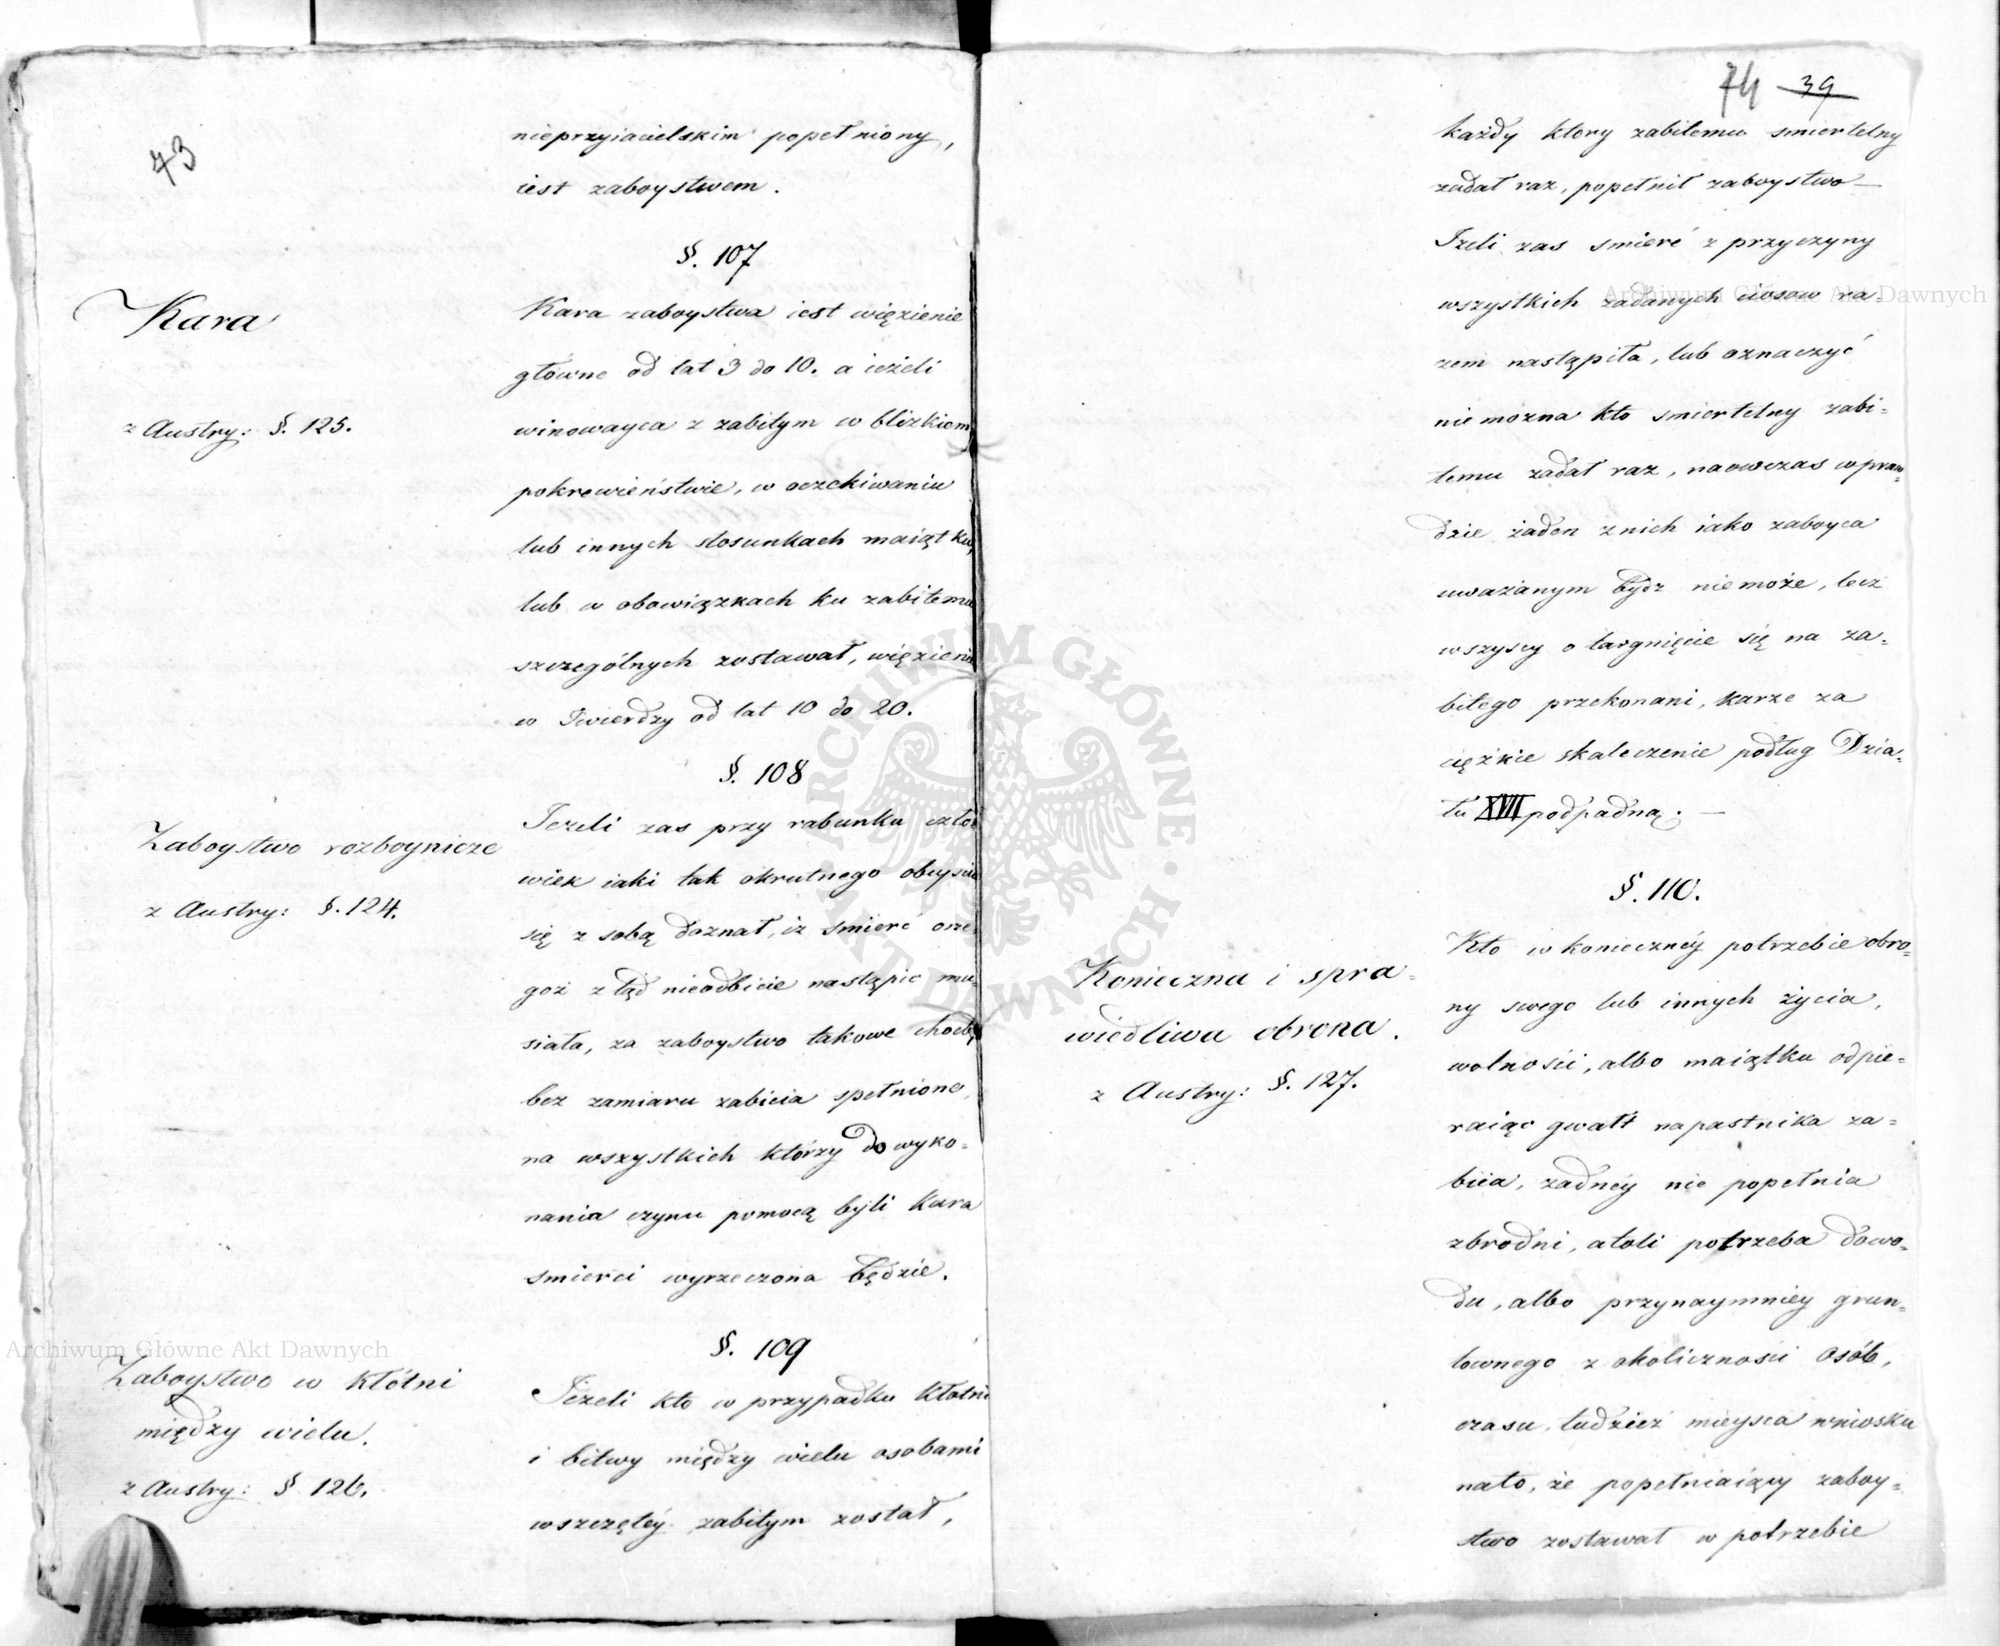 73
nieprzyiacielskim popełniony,
iest zaboystwem.
§. 107
Kara
Kara zaboystwa iest więzienie
główne od lat 3 do 10. a ieżeli
z Austry: §. 125.
winowayca z zabitym w blizkiem
pokrewieństwie, w oczekiwaniu
lub innych stosunkach maiątku,
lub w obowiązkach ku zabitemu
szczególnych zostawał, więzienie
w Twierdzy od lat 10 do 20.
§. 108
Zaboystwo rozboynicze
z Austry: §. 124.
Jeżeli zas przy rabunku czło-
wiek iaki tak okrutnego obeyscia
się z sobą doznał, iz smierc one-
goż z tąd nieodbicie nastąpic mu-
siała, za zaboystwo takowe choćby
bez zamiaru zabicia spełnione,
na wszystkich którzy do wyko=
nania czynu pomocą byli kara
smierci wyrzeczona będzie.
§. 109
Zaboystwo w kłótni
między wielu.
z Austry: § 126.
Jeżeli kto w przypadku kłótni
i bitwy między wielu osobami
wszczętéy zabitym został,
74 39
każdy ktory zabitemu smiertelny
zadał raz, popełnił zaboystwo—
Jzeli zas smierć z przyczyny
wszystkich zadanych ciosow ra-
zem nastąpiła, lub oznaczyć
niemozna kto smiertelny zabi=
temu zadał raz, naowczas wpraw-
dzie żaden znich iako zaboyca
uważanym bydz niemoże, lecz
wszyscy o targnięcie się na za-
bitego przekonani, karze za
cięźkie skaleczenie podług Dzia-
łu XVII podpadną. —
§. 110.
Konieczna i spra=
wiedliwa obrona.
z Austry: §. 127.
Kto w koniecznéy potrzebie obro-
ny swego lub innych życia,
wolności, albo maiątku odpie=
raiąc gwałt napastnika za=
biia, zadnéy nie popełnia
zbrodni, atoli potrzeba dowo-
du, albo przynaymniey grun-
townego z okoliczności osób,
czasu, tudzież mieysca wniosku
nato, że popełniaiący zaboy=
stwo zostawał w potrzebie
Archiwum Główne Akt Dawnych
Archiwum Główne Akt Dawnych
ARCHIWUM GŁÓWNE · AKT DAWNYCH ·